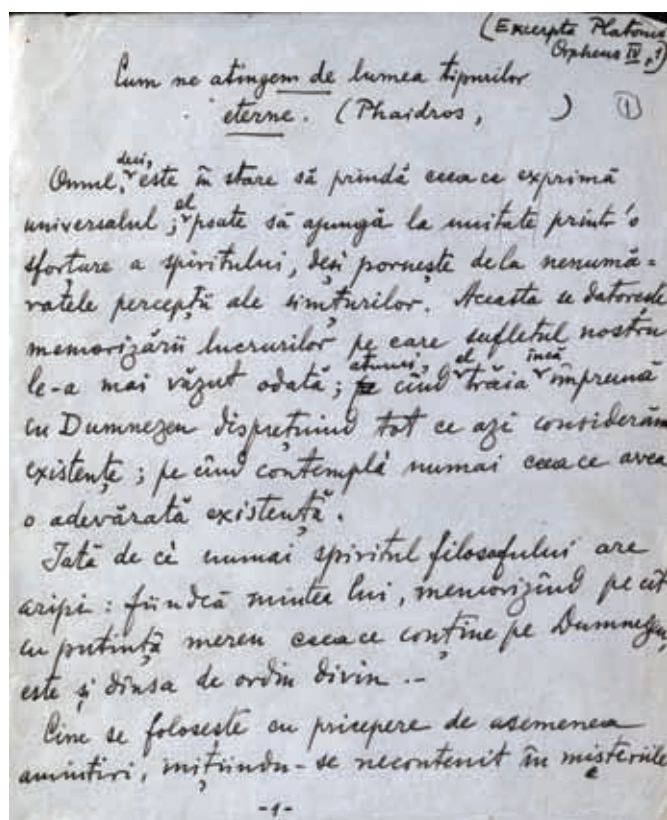 (Excerpta Platonis
Orpheus IV, 1)
Cum ne atingem de lumea tipurilor
eterne. (Phaidros, ) 1
Omul, deci, este în stare să prindă ceea ce exprimă
universalul; el poate să ajungă la unitate printr'o
sforțare a spiritului, deși pornește dela nenumă=
ratele percepții ale simțurilor. Aceasta se datorește
memorizării lucrurilor pe care sufletul nostru
le-a mai văzut odată; atunci, cînd el trăia încă împreună
cu Dumnezeu disprețuind tot ce azi considerăm
existențe; pe cînd contemplă numai ceea ce avea
o adevărată existență.
Iată de ce numai spiritul filosofului are
aripi: fiindcă mintea lui, memorizînd pe cît
cu putință mereu ceea ce conține pe Dumnezeu,
este și dînsa de ordin divin.-
Cine se folosește cu pricepere de asemenea
amintiri, inițiindu-se necontenit în misteriile
-1-